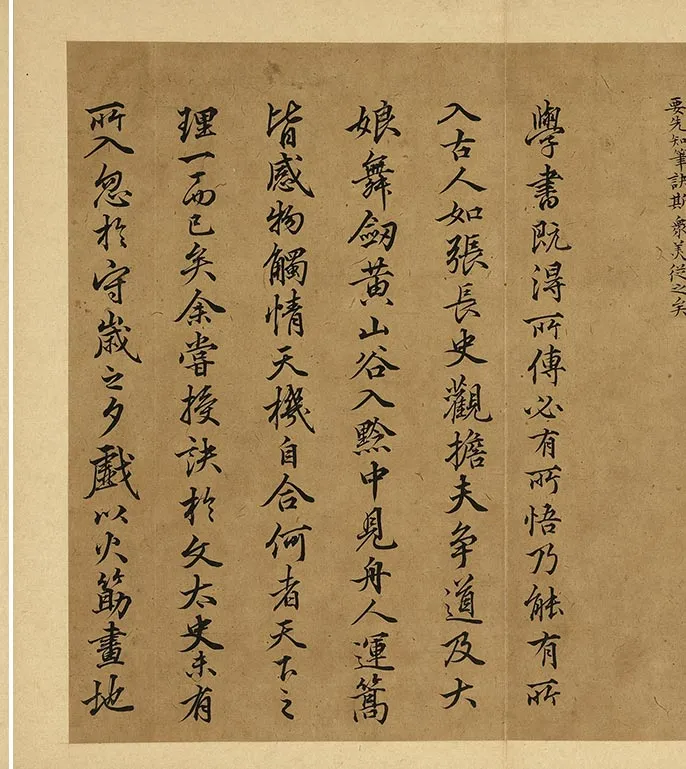 要先知筆訣斯衆美従之矣
學書既得所傳必有所悟乃能有所
入古人如張長史觀擔夫争道及大
娘舞劔黄山谷入黔中見舟人運篙
皆感物觸情天機自合何者天下之
理一而已矣余嘗授訣於文太史未有
所入忽於守歳之夕戲以火筯畫地